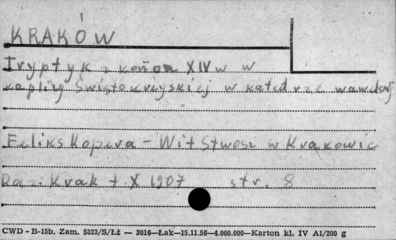 KRAKÓW
Tryptyk z końca XIV w w
kaplicy Świętokrzyskiej w katedrze wawelskiej
Feliks Kopera - Wit Stwosz w Krakowie
Rocz. Krak t X 1907 str. 8
CWD - B-15b. Zam. 5023/S/Łż — 3016—Łak—15.11.56—4.000.000—Karton kl. IV A1/200 g